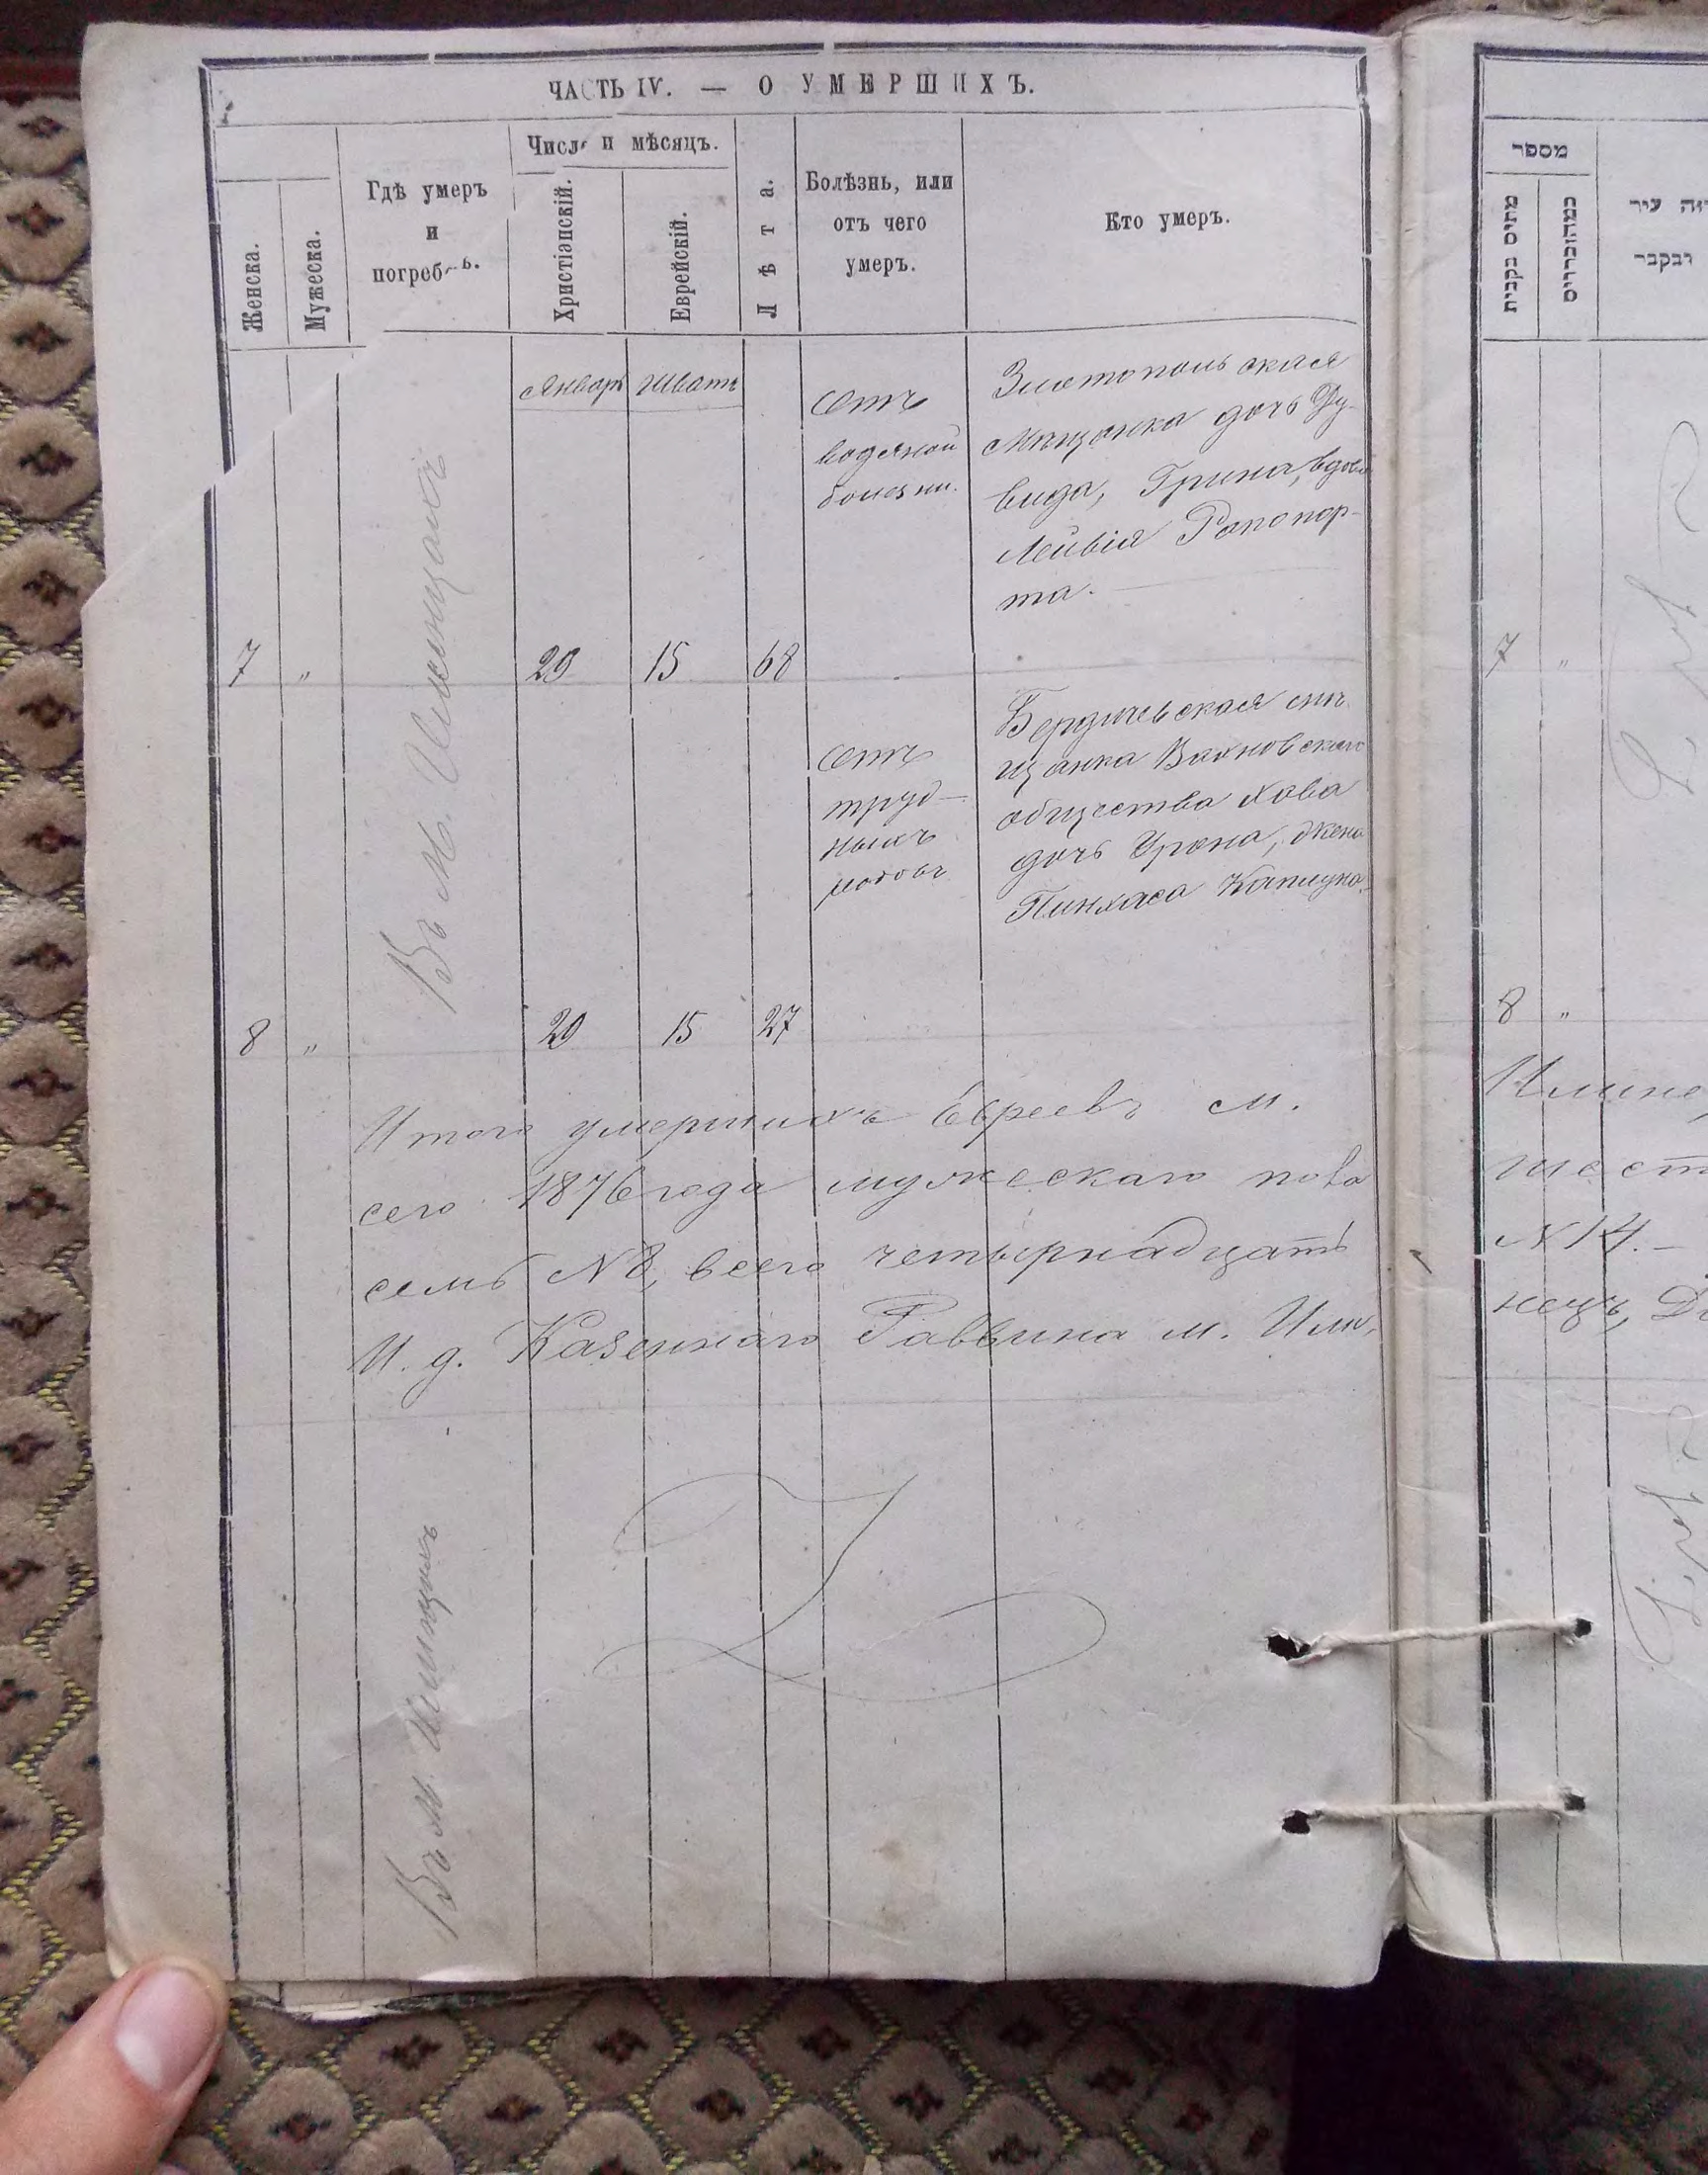 ЧАСТЬ IV. — О УМЕРШИХЪ.
Женска.
Мужеска.
Гдѣ умеръ
и
погреб ъ.
Число и мѣсяцъ.
Христіанскій.
Еврейскій.
Лѣта.
Болѣзнь, или
отъ чего
умеръ.
Кто умеръ.
Январь
Шватъ
Отъ
водяной
болезни.
Златопольская
Мѣщанка дочь Ду-
вида, Грина, вдова
Лейвія Рапопор-
та.
7 „ 29 15 68
Въ м. Ильинцахъ
Отъ
труд-
ныхъ
родовъ
Бердичевская мѣ
щанка Вахновскаго
общества Хова
дочь Урона, жена
Пинхаса Каплуна.
8 „ 29 15 27
Итого умершихъ Евреевъ м.
сего 1876 года мужескаго пола
семь N8, всего четырнадцать
И. д. Казеннаго Раввина м. Или,
Въ м. Илинцахъ
מספר
7 „
8 „
Илине
шест
N 14. —
нецъ,